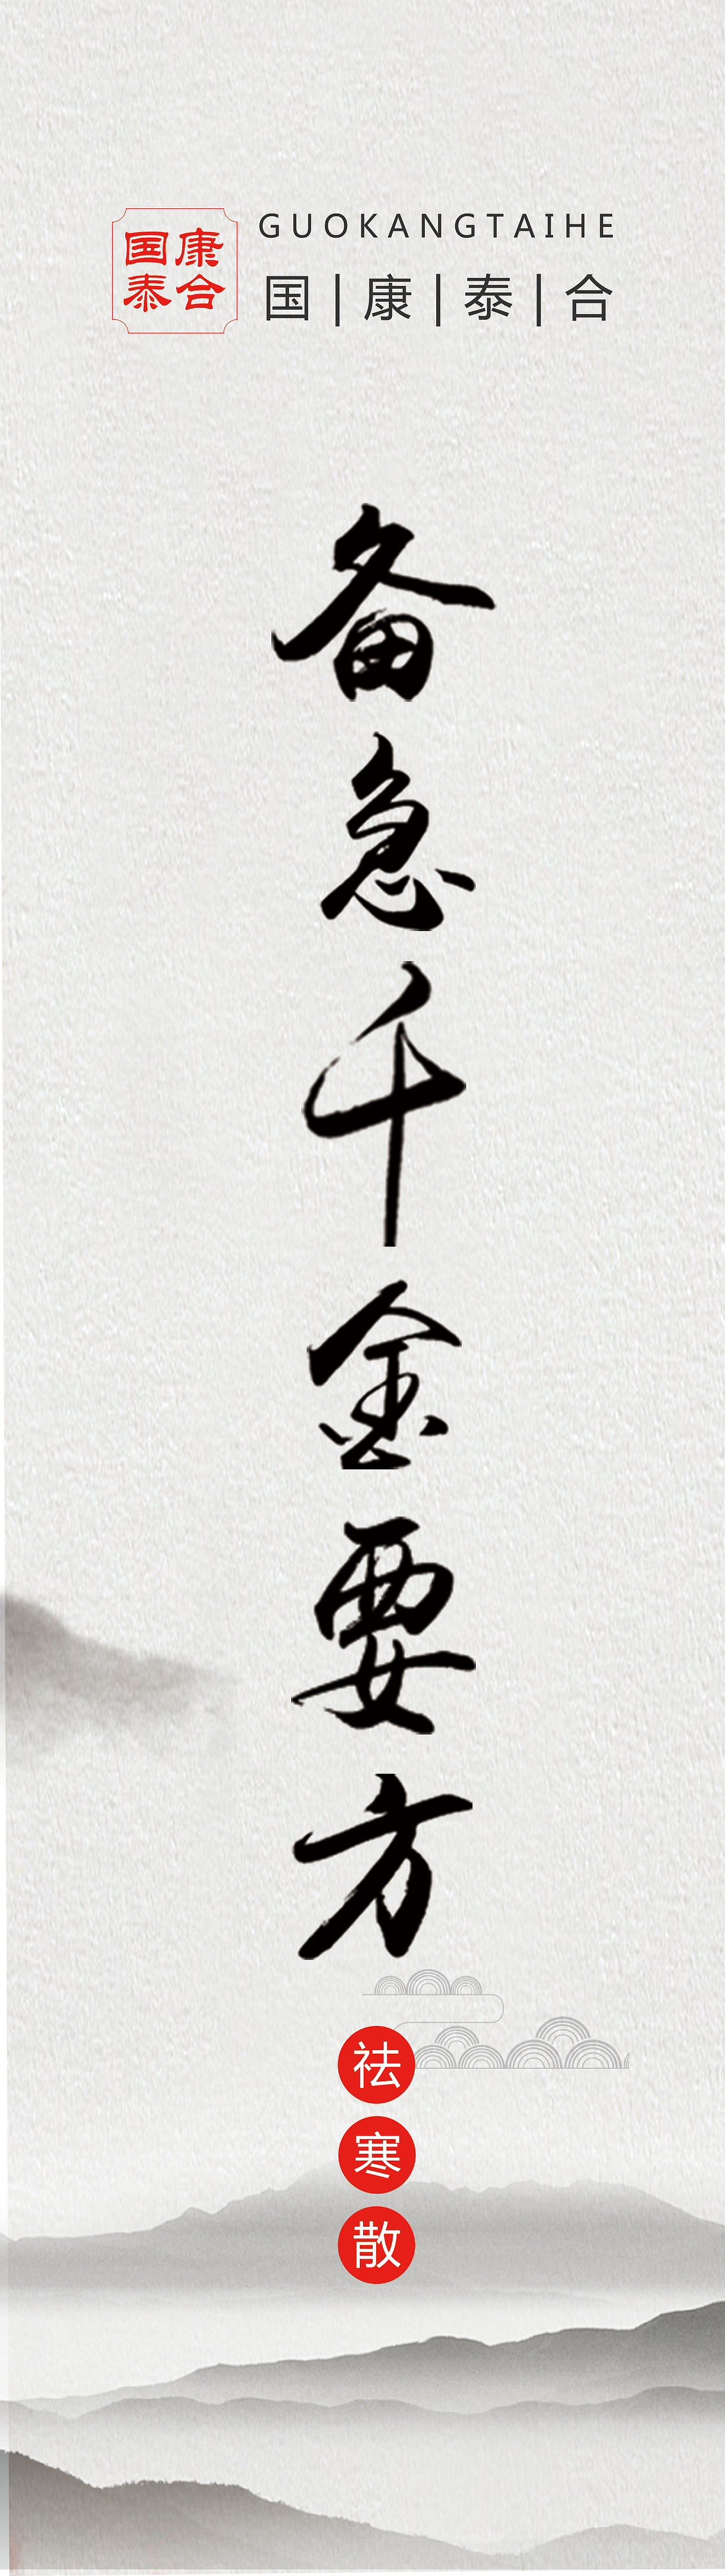 国康
泰合
GUOKANGTAIHE
国|康|泰|合
备急千金要方
祛寒散